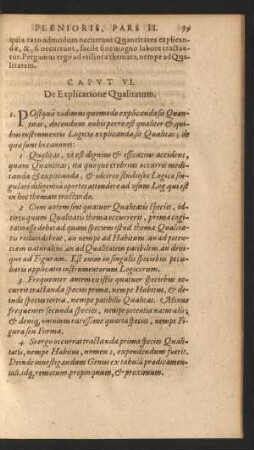 PLENIORIS, PARS II. 39
quia raro admodum occurrunt Quantitates explican-
dæ, &, si occurrant, facile sine magno labore tractan-
tur. Pergamus ergo ad vtiliora themata, nempe ad Qua-
litatem.
CAPVT VI.
De Explicatione Qualitatum.
1. POstquã vidimus quomodo explicanda sit Quan-
titas, docendum nobis porro est qualiter & qui-
bus instrumentis Logicis explicanda sit Qualitas; de
qua sunt hi canones:
1 Qualitas, vt est dignius & efficacius accidens,
quam Quantitas; ita quoque crebrius occurrit tractan-
da & explicanda, & idcirco studiosos Logica sin-
gulari diligentia oportet attendere ad vsum Logicum
in hoc themate tractando.
2 Cum autem sint quatuor Qualitatis species, id-
circo quum Qualitatis thema occurrerit, prima cogi-
tatio esse debet ad quam speciem istud thema Qualitatis
redducendum, an nempe ad Habitum: an ad poten-
tiam naturalem: an ad Qualitatem patibilem: an deni-
que ad Figuram. Est enim in singulis speciebus pe-
culiaris applicatio instrumentorum Logicorum.
3 Frequenter autem ex istis quatuor speciebus oc-
currit tractanda species prima, nempe Habitus, & de-
inde species tertia, nempe patibilis Qualitas. Minus
frequenter secunda species, nempe potentia naturalis;
& deniq, omnium rarissime quarta species, nempe Fi-
gura seu Forma.
4 Si ergo occurrat tractanda prima species Quali-
tatis, nempe Habitus, nomen 1, expendendum fuerit.
Deinde investigandum Genus ex tabula prædicamen-
tali, idq, remotum propinquum, & proximum.